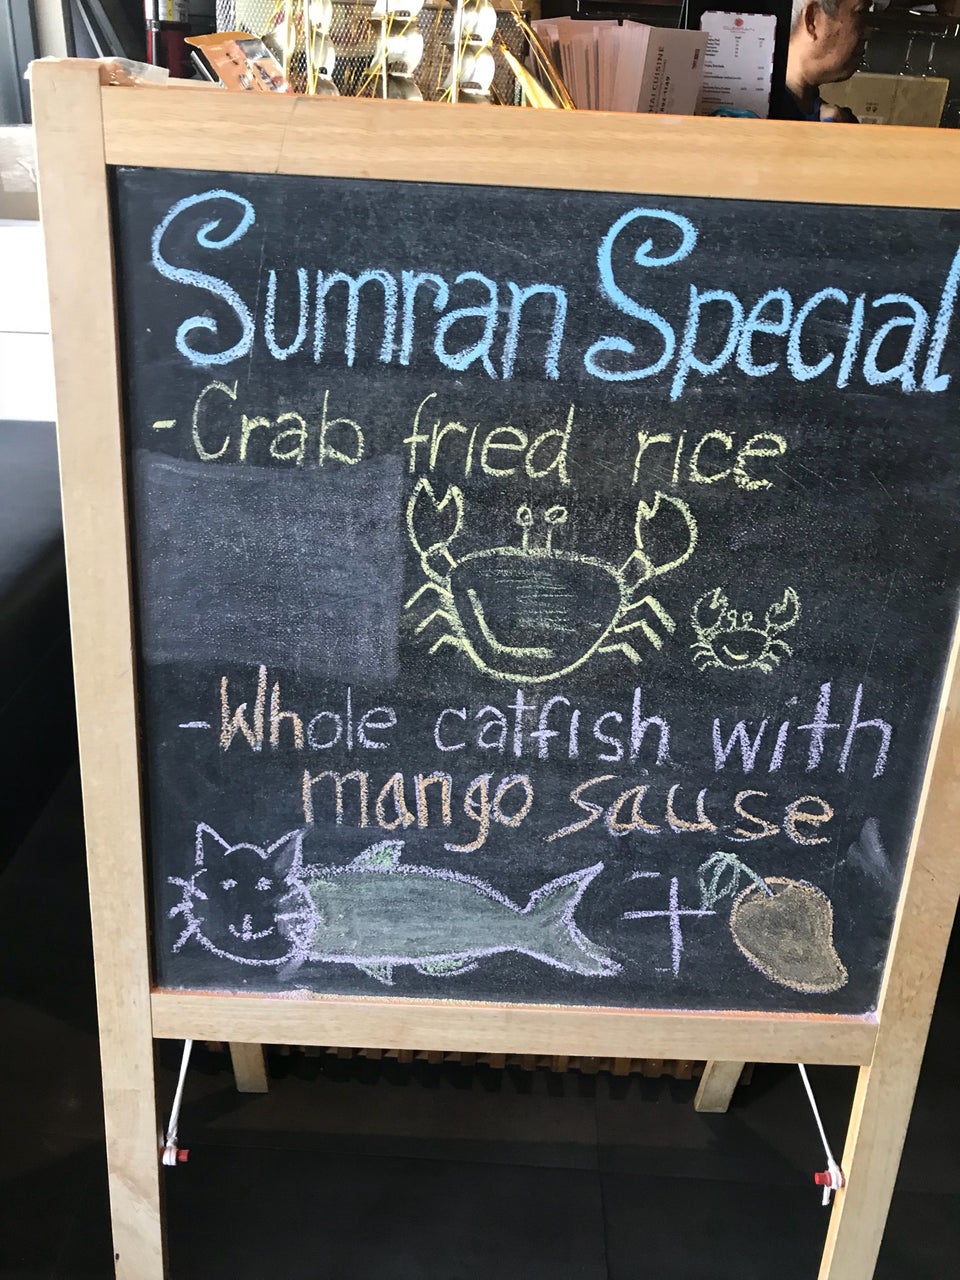 Sumran Special
- Crab fried rice
- Whole catfish with
mango sause